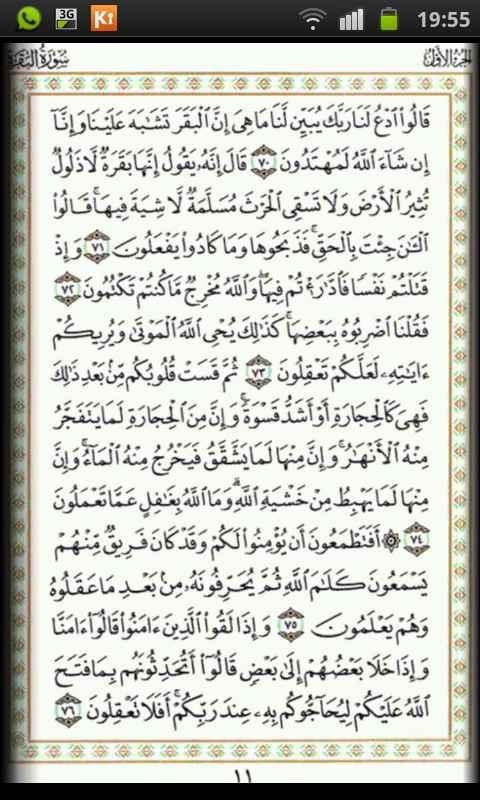 3G
K
19:55
الجزء الأول
سورة البقرة
قَالُوا۟ ٱدْعُ لَنَا رَبَّكَ يُبَيِّن لَّنَا مَا هِىَ إِنَّ ٱلْبَقَرَ تَشَـٰبَهَ عَلَيْنَا وَإِنَّآ
إِن شَآءَ ٱللَّهُ لَمُهْتَدُونَ ٧٠ قَالَ إِنَّهُۥ يَقُولُ إِنَّهَا بَقَرَةٌ لَّا ذَلُولٌ
تُثِيرُ ٱلْأَرْضَ وَلَا تَسْقِى ٱلْحَرْثَ مُسَلَّمَةٌ لَّا شِيَةَ فِيهَا ۚ قَالُوا۟
ٱلْـَٔـٰنَ جِئْتَ بِٱلْحَقِّ ۚ فَذَبَحُوهَا وَمَا كَادُوا۟ يَفْعَلُونَ ٧١ وَإِذْ
قَتَلْتُمْ نَفْسًا فَٱدَّٰرَْٰٔتُمْ فِيهَا ۖ وَٱللَّهُ مُخْرِجٌ مَّا كُنتُمْ تَكْتُمُونَ ٧٢
فَقُلْنَا ٱضْرِبُوهُ بِبَعْضِهَا ۚ كَذَٰلِكَ يُحْىِ ٱللَّهُ ٱلْمَوْتَىٰ وَيُرِيكُمْ
ءَايَـٰتِهِۦ لَعَلَّكُمْ تَعْقِلُونَ ٧٣ ثُمَّ قَسَتْ قُلُوبُكُم مِّنۢ بَعْدِ ذَٰلِكَ
فَهِىَ كَٱلْحِجَارَةِ أَوْ أَشَدُّ قَسْوَةً ۚ وَإِنَّ مِنَ ٱلْحِجَارَةِ لَمَا يَتَفَجَّرُ
مِنْهُ ٱلْأَنْهَـٰرُ ۚ وَإِنَّ مِنْهَا لَمَا يَشَّقَّقُ فَيَخْرُجُ مِنْهُ ٱلْمَآءُ ۚ وَإِنَّ
مِنْهَا لَمَا يَهْبِطُ مِنْ خَشْيَةِ ٱللَّهِ ۗ وَمَا ٱللَّهُ بِغَـٰفِلٍ عَمَّا تَعْمَلُونَ
٧٤ ۞ أَفَتَطْمَعُونَ أَن يُؤْمِنُوا۟ لَكُمْ وَقَدْ كَانَ فَرِيقٌ مِّنْهُمْ
يَسْمَعُونَ كَلَـٰمَ ٱللَّهِ ثُمَّ يُحَرِّفُونَهُۥ مِنۢ بَعْدِ مَا عَقَلُوهُ
وَهُمْ يَعْلَمُونَ ٧٥ وَإِذَا لَقُوا۟ ٱلَّذِينَ ءَامَنُوا۟ قَالُوٓا۟ ءَامَنَّا
وَإِذَا خَلَا بَعْضُهُمْ إِلَىٰ بَعْضٍ قَالُوٓا۟ أَتُحَدِّثُونَهُم بِمَا فَتَحَ
ٱللَّهُ عَلَيْكُمْ لِيُحَآجُّوكُم بِهِۦ عِندَ رَبِّكُمْ ۚ أَفَلَا تَعْقِلُونَ ٧٦
١١